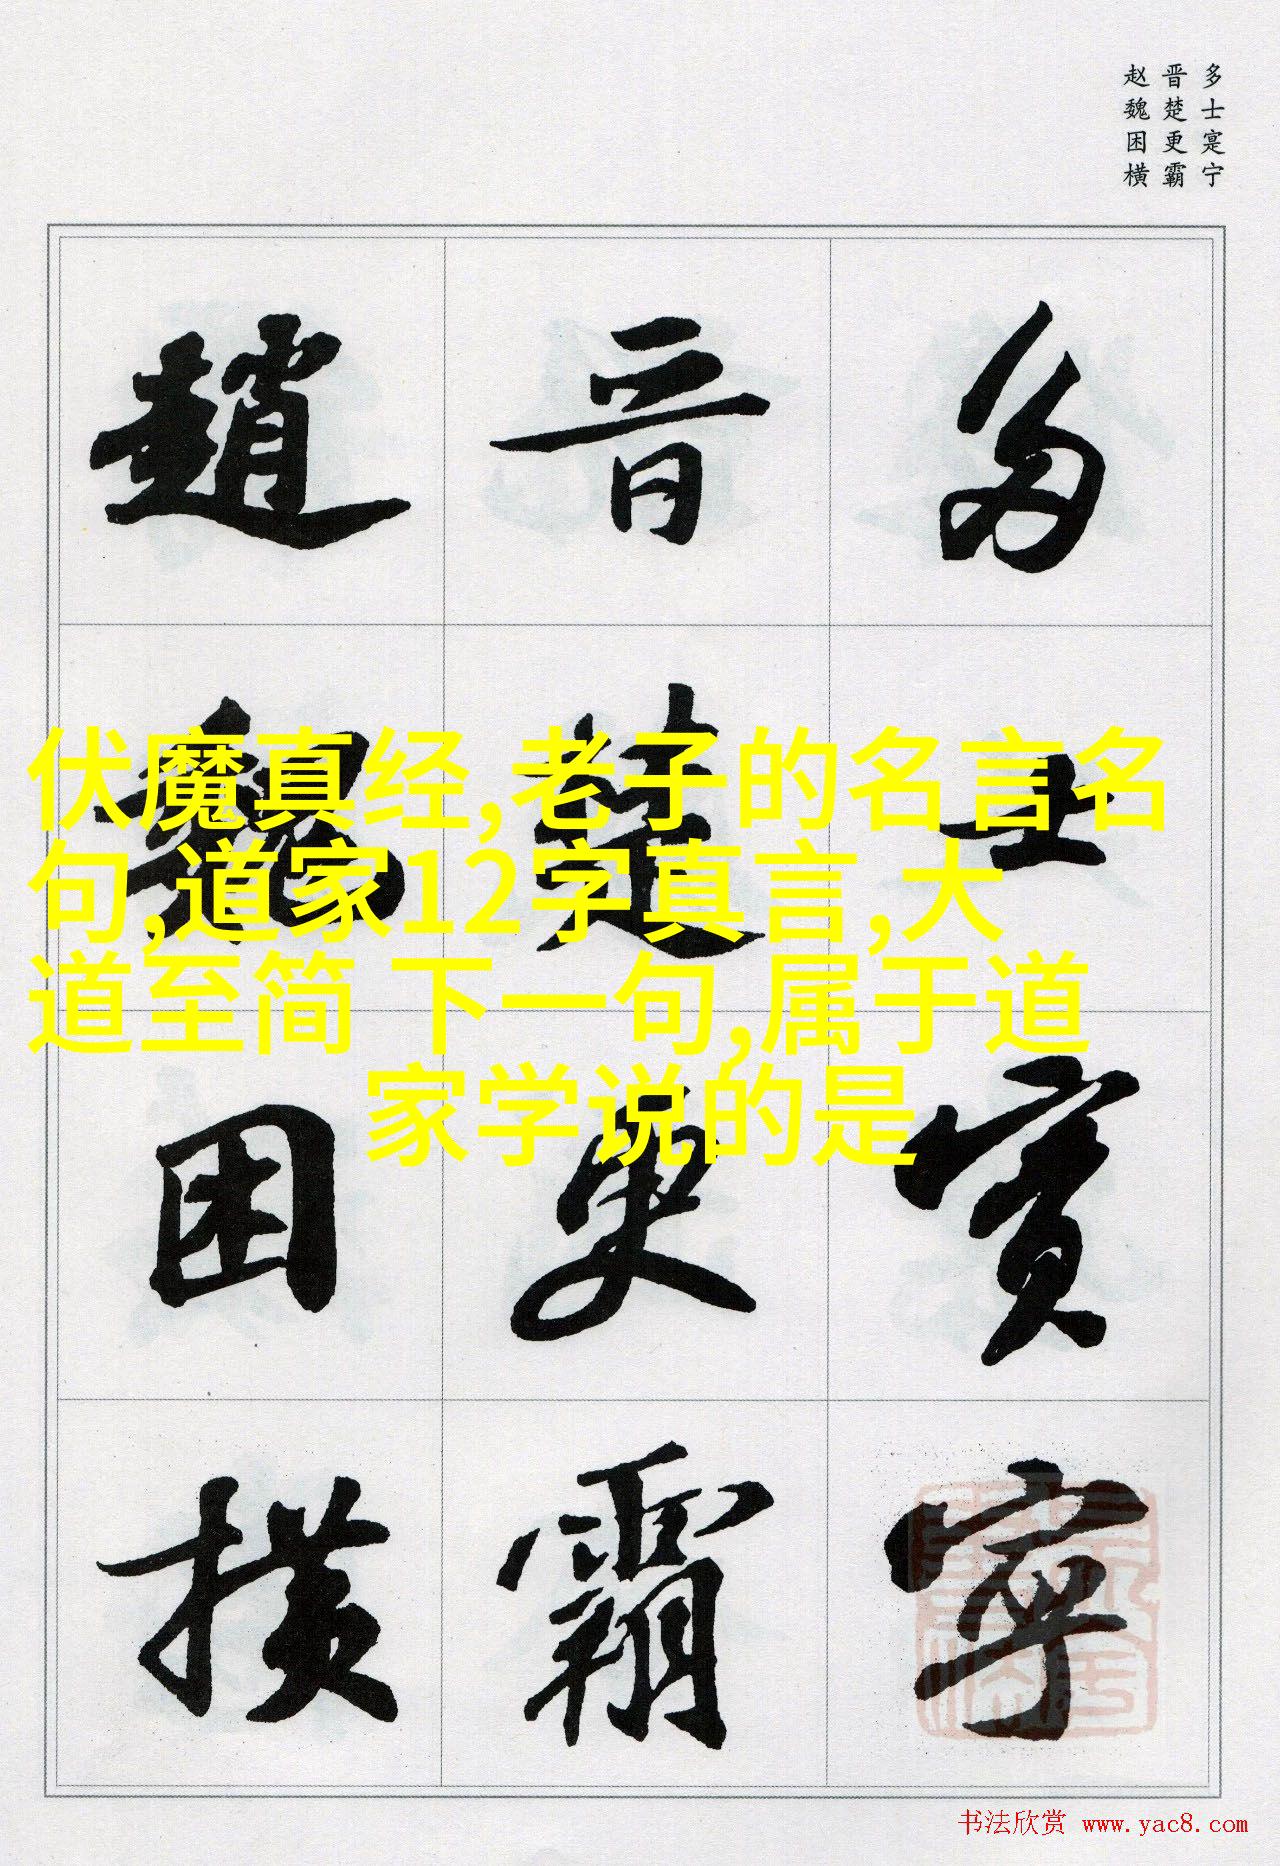 多士寔宁
晋楚更霸
赵魏困横
多士寔寧
晋楚更霸
趙魏困横
伏魔真经,老子的名言名
句,道家12字真言,大
道至简 下一句,属于道
家学说的是
书法欣赏 www.yac8.com